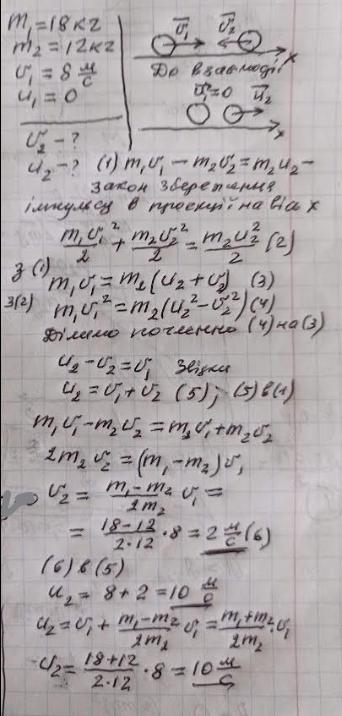 m₁ = 18 кг
m₂ = 12 кг
v₁ = 8 м/с
u₁ = 0
v₂ - ?
u₂ - ?
v⃗₁ v⃗₂
x
До взаємодії
u⃗₁ = 0 u⃗₂
x
(1) m₁v₁ - m₂v₂ = m₂u₂ -
закон збереження
імпульсу в проекції на вісь x
m₁v₁²/2 + m₂v₂²/2 = m₂u₂²/2 (2)
з (1)
m₁v₁ = m₂(u₂ + v₂) (3)
з(2) m₁v₁² = m₂(u₂² - v₂²) (4)
Ділимо почленно (4) на (3)
u₂ - v₂ = v₁ звідки
u₂ = v₁ + v₂ (5); (5) в (1)
m₁v₁ - m₂v₂ = m₂v₁ + m₂v₂
2m₂v₂ = (m₁ - m₂)v₁
v₂ = (m₁ - m₂)/(2m₂) v₁ =
= (18 - 12)/(2·12) · 8 = 2 м/с (6)
(6) в (5)
u₂ = 8 + 2 = 10 м/с
u₂ = v₁ + (m₁ - m₂)/(2m₂) v₁ = (m₁ + m₂)/(2m₂) · v₁
u₂ = (18 + 12)/(2·12) · 8 = 10 м/с